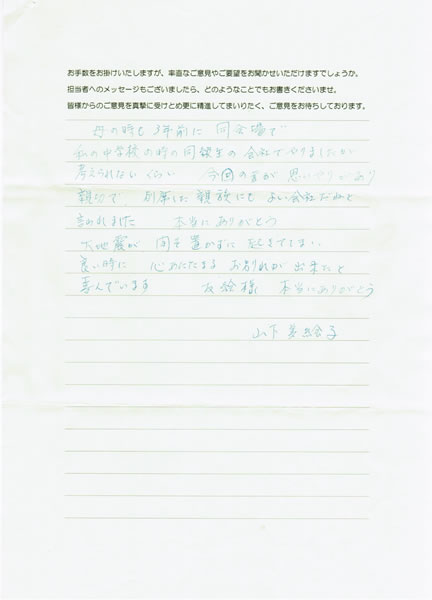 お手数をお掛けいたしますが、率直なご意見やご要望をお聞かせいただけますでしょうか。
担当者へのメッセージもございましたら、どのようなことでもお書きくださいませ。
皆様からのご意見を真摯に受けとめ更に精進してまいりたく、ご意見をお待ちしております。
母の時も 3年前に 同会場で
私の中学校の時の同級生の会社でやりましたが
考えられない くらい 今回の方が 思いやりがあり
親切で、列席した親族にも よい会社だねと
言われました 本当にありがとう
大地震が 間を置かずに 起きてしまい
良い時に 心あたたまる お別れが出来たと
喜んでいます 友絵様 本当にありがとう
山下